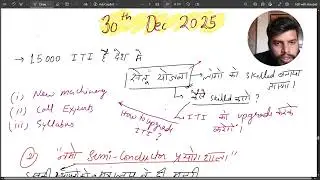 30th Dec 2025
→ 15000 ITI है देश में
सेतू योजना → लोगों को skilled बनाया जाएगा।
कैसे skilled करोगे?
(i) New machinery
(ii) Call Experts
(iii) Syllabus
How to upgrade ITI?
→ ITI को upgrade करके करेंगे।
② "नमो Semi-conductor प्रयोगशाला"